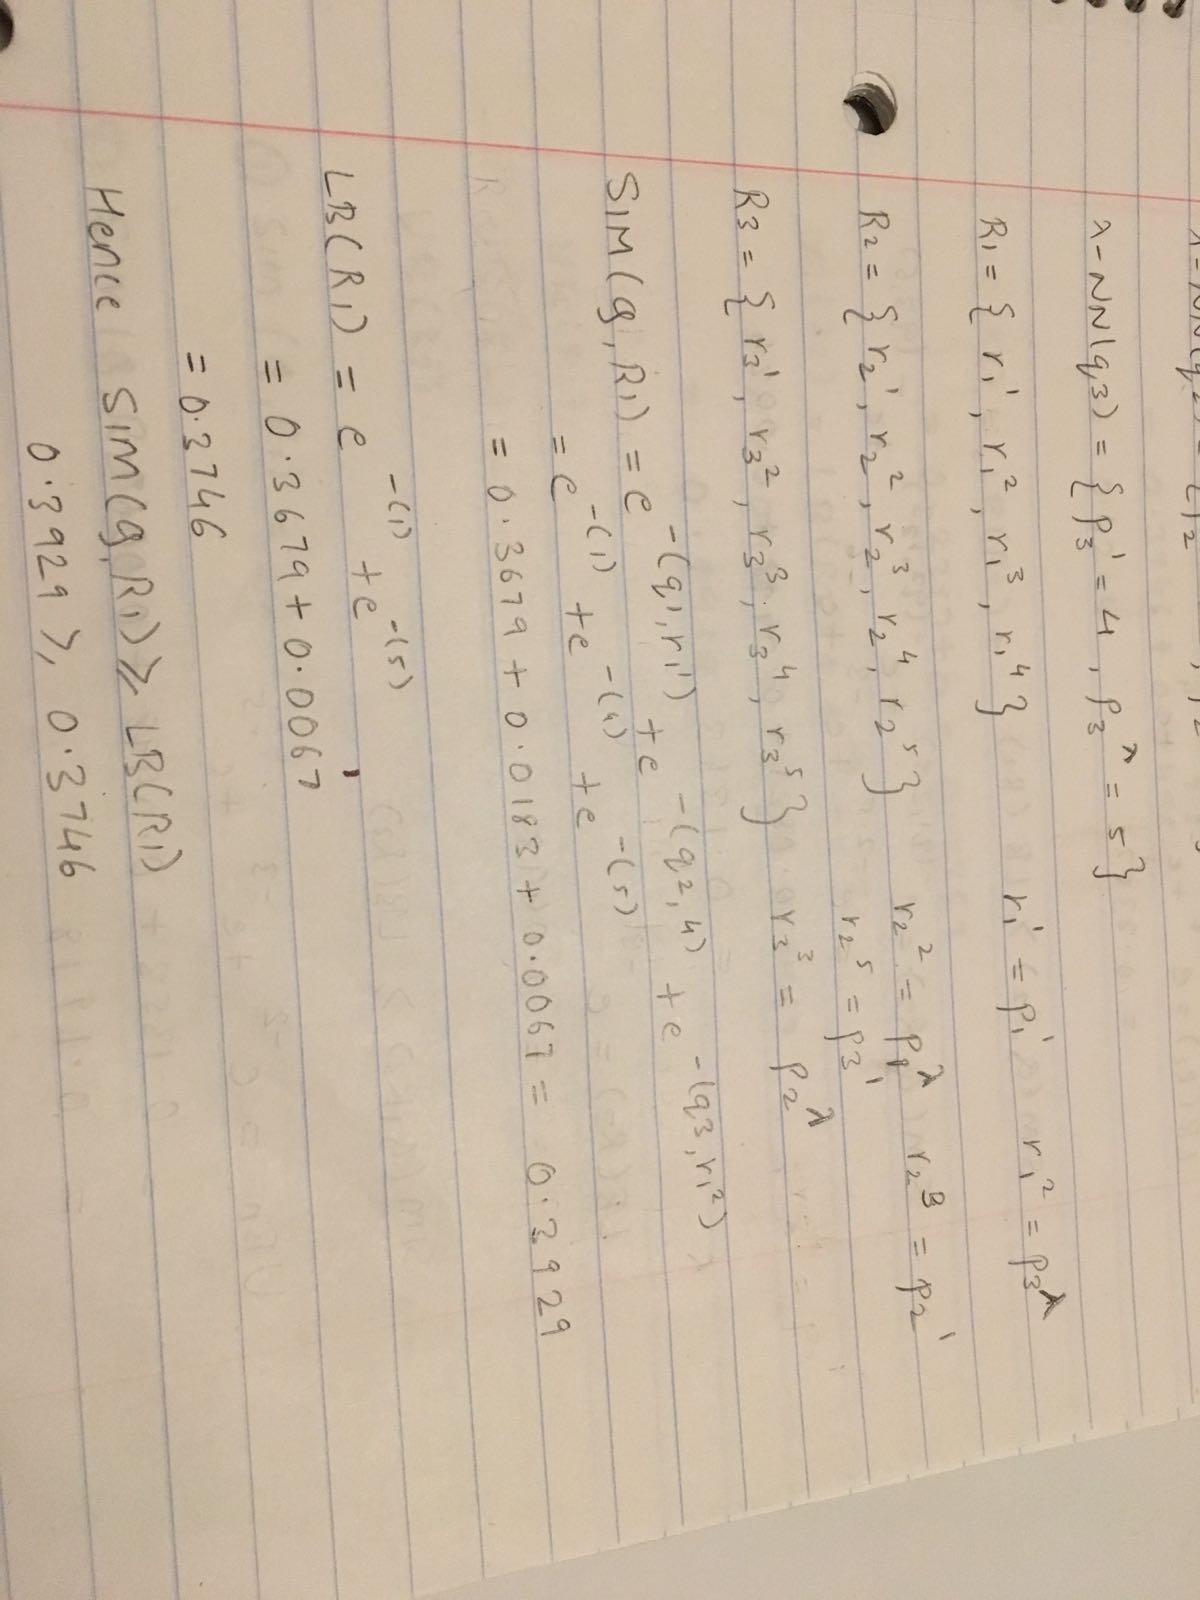 λ-NN(q3) = { p3¹ = 4, p3^λ = 5 }
R1 = { r1¹, r1², r1³, r1⁴ } r1¹ = p1¹ r1² = p3^λ
R2 = { r2¹, r2², r2³, r2⁴, r2⁵ } r2² = p1^λ r2³ = p2¹
r2⁵ = p3¹
R3 = { r3¹, r3², r3³, r3⁴, r3⁵ } r3³ = p2^λ
SIM(q, R1) = e^-(q1, r1¹) + e^-(q2, 4) + e^-(q3, r1²)
= e^-(1) + e^-(4) + e^-(5)
= 0.3679 + 0.0183 + 0.0067 = 0.3929
LB(R1) = e^-(1) + e^-(5)
= 0.3679 + 0.0067
= 0.3746
Hence SIM(q, R1) ≥ LB(R1)
0.3929 ≥ 0.3746